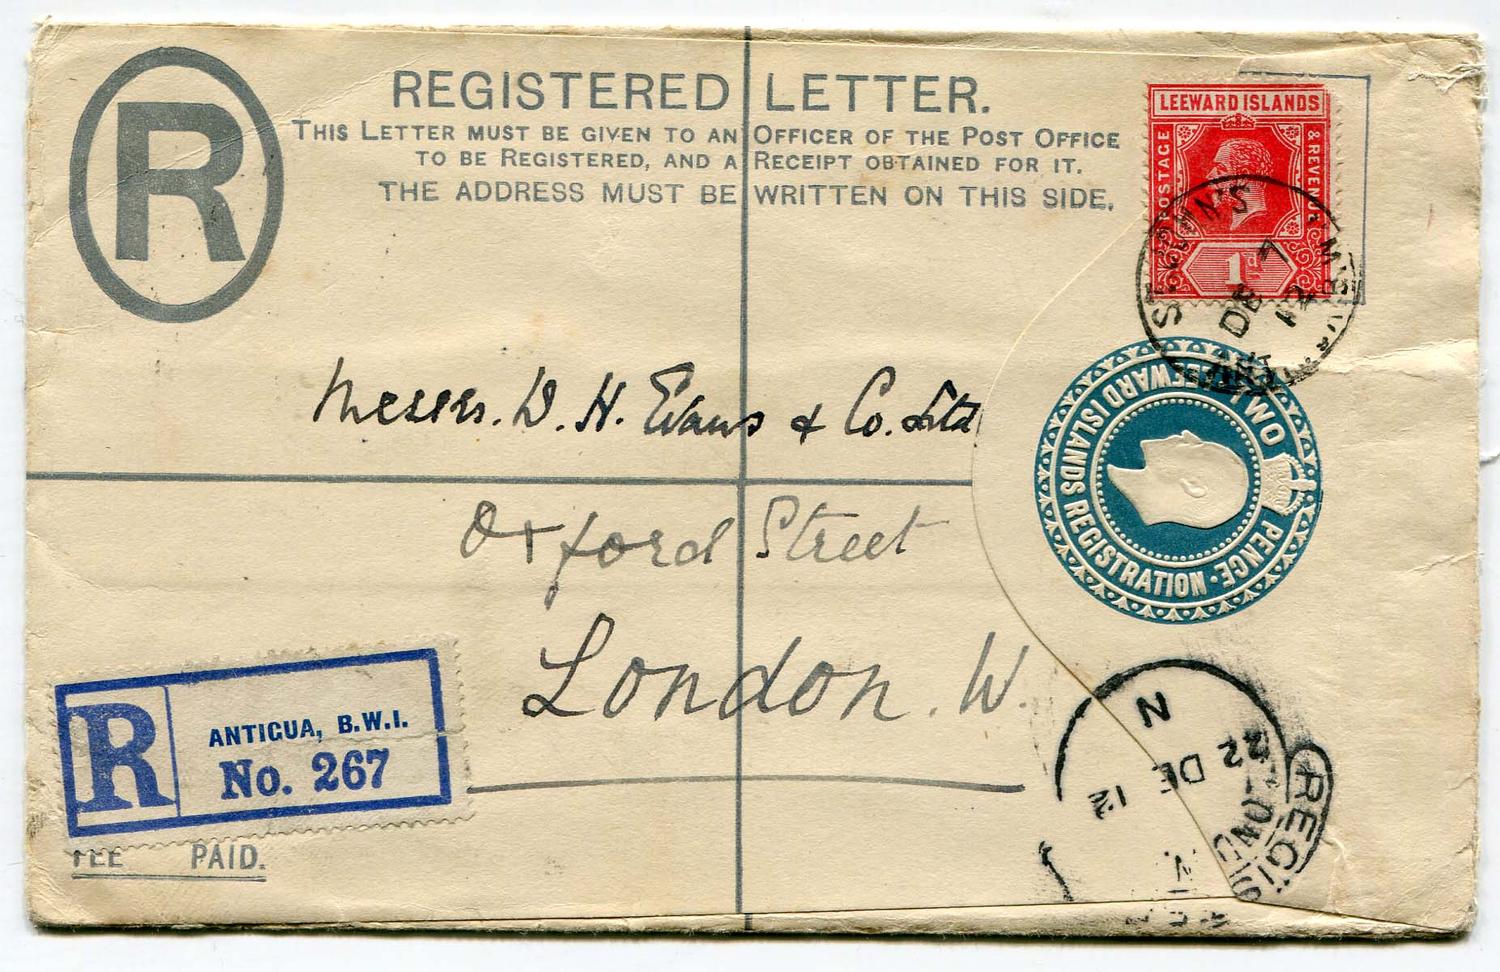 R
REGISTERED LETTER.
THIS LETTER MUST BE GIVEN TO AN OFFICER OF THE POST OFFICE
TO BE REGISTERED, AND A RECEIPT OBTAINED FOR IT.
THE ADDRESS MUST BE WRITTEN ON THIS SIDE.
LEEWARD ISLANDS
POSTAGE & REVENUE
1d
ST. JOHN'S
DE 7
12
Messrs. D. H. Evans & Co. Ltd
Oxford Street
London. W.
LEEWARD ISLANDS REGISTRATION · TWO PENCE ·
R
ANTIGUA, B.W.I.
No. 267
FEE PAID.
N
22 DE 12
REGIS
LONDON